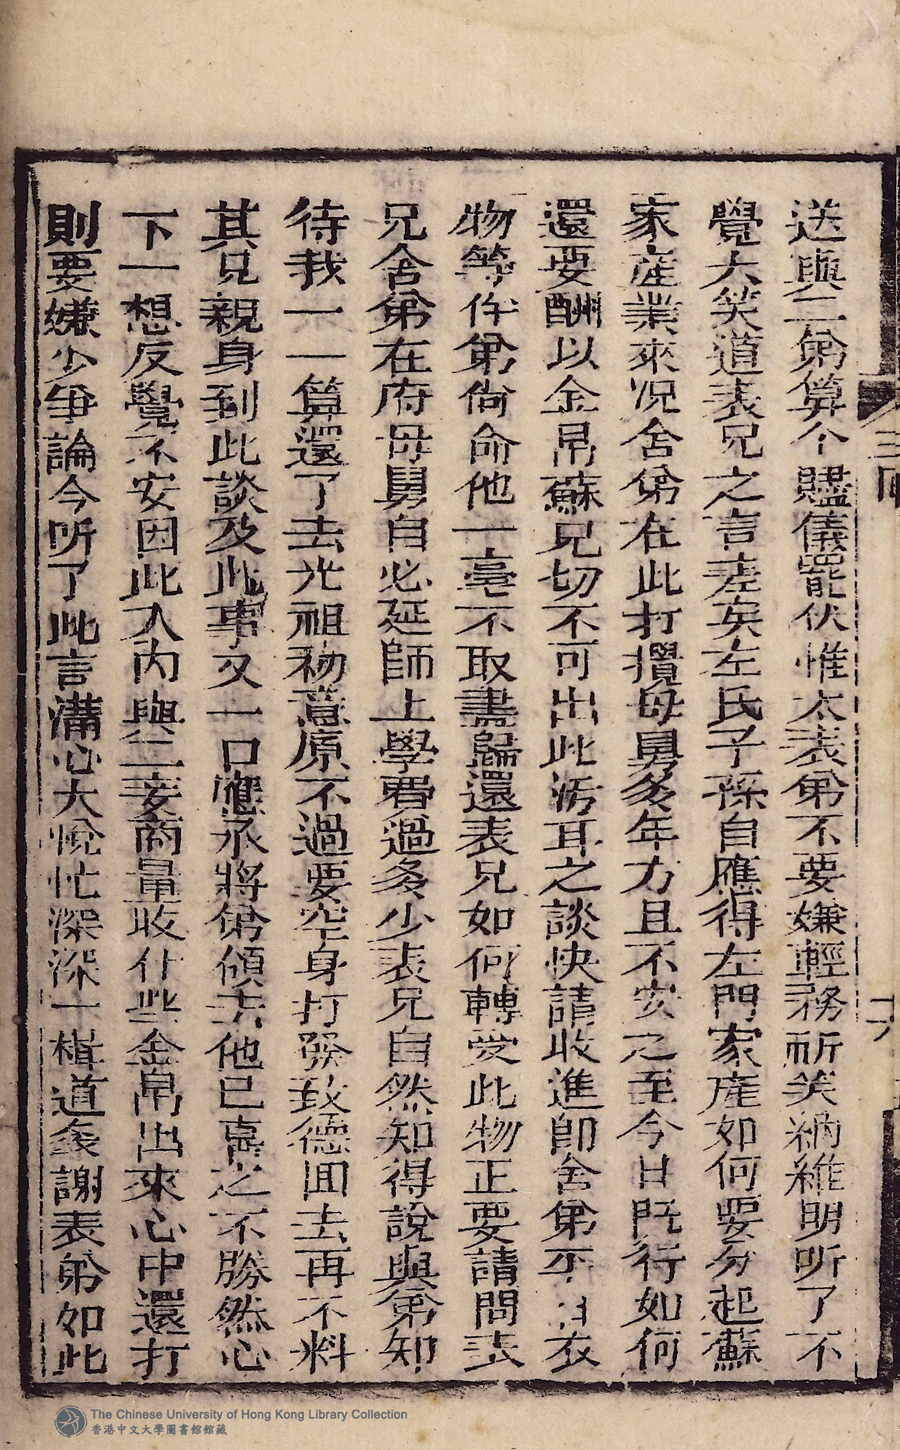 送與二弟算个贐儀罷伏惟太表弟不要嫌輕務祈笑納維明听了不
覺大笑道表兄之言差矣左氏子孫自應得左門家產如何要分起蘇
家產業來况舍弟在此打攪母舅多年方且不安之至今日既行如何
還要酬以金帛蘇兄切不可出此汚耳之談快請收進即舍弟平日衣
物等件弟尙命他一毫不取盡歸還表兄如何轉受此物正要請問表
兄舍弟在府母舅自必延師上學費過多少表兄自然知得說與弟知
待我一一算還了去光祖初意原不過要空身打發致德囬去再不料
其兄親身到此談及此事又一口應承將弟領去他已喜之不勝然心
下一想反覺不安因此入內與二妾商量收什些金帛出來心中還打
則要嫌少爭論今听了此言滿心大悅忙深深一楫道多謝表弟如此
三囬
十六
The Chinese University of Hong Kong Library Collection
香港中文大學圖書館館藏